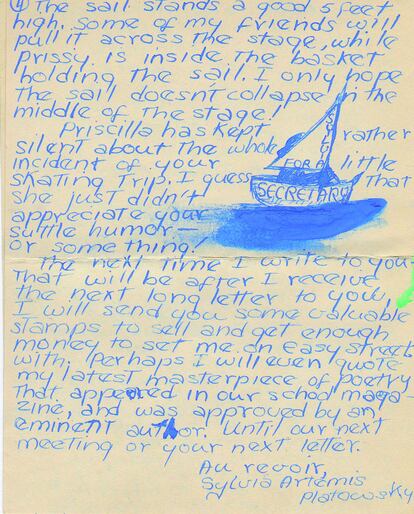 ④ The sail stands a good 5 feet
high. Some of my friends will
pull it across the stage, while
Prissy is inside the basket
holding the sail. I only hope
the sail doesn't collapse in the
middle of the stage!
Priscilla has kept rather
silent about the whole little
incident of your
skating trip. I guess that
she just didn't
appreciate your
suttle humor—
or something!
SYLVIA
FOR A
SECRETARY
The next time I write to you
That will be after I receive
the next long letter to you,
I will send you some valuable
stamps to sell and get enough
money to set me on easy street
with. Perhaps I will even quote
my latest masterpiece of poetry
that appeared in our school maga-
zine, and was approved by an
eminent author. Until our next
meeting or your next letter.
Au revoir,
Sylvia Artemis
Platowsky